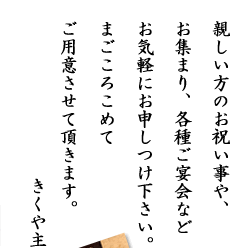 親しい方のお祝い事や、
お集まり、各種ご宴会など
お気軽にお申しつけ下さい。
まごころこめて
ご用意させて頂きます。
きくや主